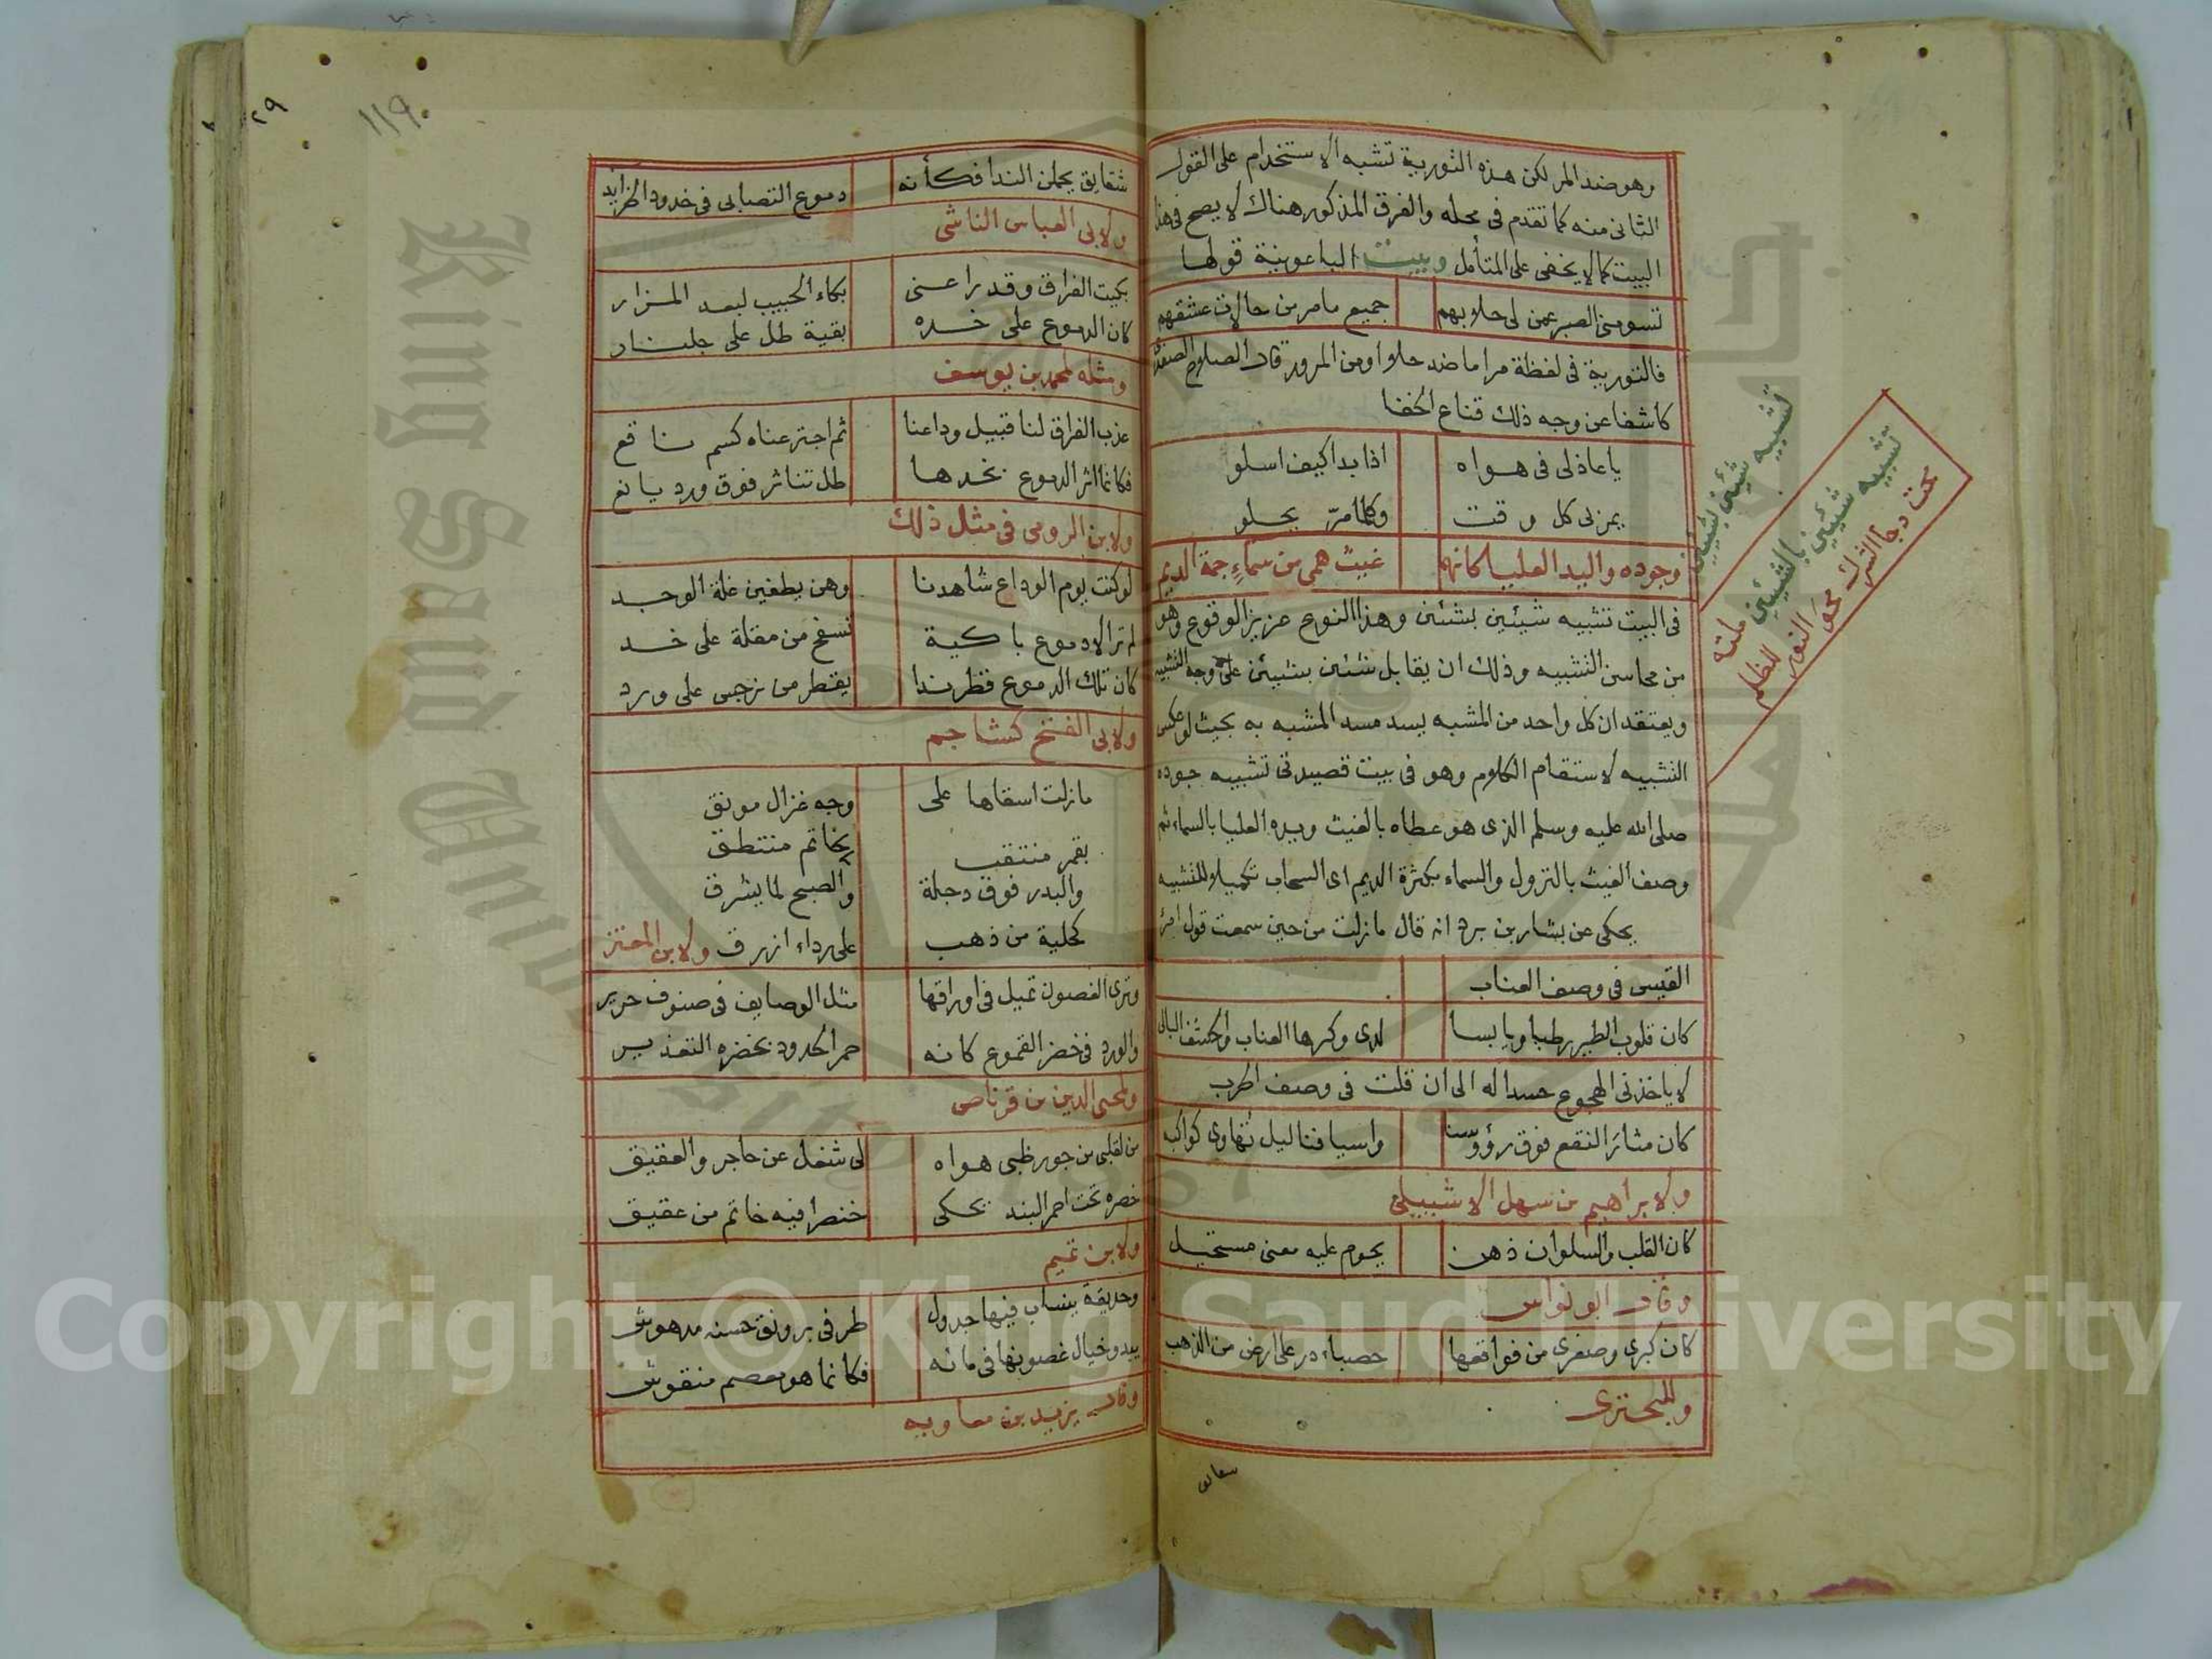 وهو ضد المر لكن هذه التورية تشبه الاستخدام على القول
الثاني منه كما تقدم في محله والفرق المذكور هناك لا يصح في هذا
البيت كما لا يخفى على المتأمل وبيت الباعونية قولها
تسومني الصبر عمن لي حلا بهم جميع ما مر من حالات عشقهم
فالتورية في لفظة مر اما ضد حلو او من المرور قال الصلاح الصفدي
كاشفا عن وجه ذلك قناع الخفا
يا عاذلي في هواه اذا بدا كيف اسلو
يمر بي كل وقت وكلما مرّ يحلو
وجوده واليد العليا كانهما غيث همى من سماءٍ جمة الديم
في البيت تشبيه شيئين بشئين وهذا النوع عزيز الوقوع وهو
من محاسن التشبيه وذلك ان يقابل شئين بشيئين على وجه التشبيه
ويعتقد ان كل واحد من المشبه يسد مسد المشبه به بحيث لو عكس
التشبيه لاستقام الكلام وهو في بيت قصيدتي تشبيه جوده
صلى الله عليه وسلم الذي هو عطاه بالغيث ويده العليا بالسماء ثم
وصف الغيث بالنزول والسماء بكثرة الديم اي السحاب تكميلا للتشبيه
يحكى عن بشار بن برد انه قال ما زلت من حين سمعت قول امرئ
القيس في وصف العناب
كان قلوب الطير رطبا ويابسا لدى وكرها العناب والحشف البالي
لا ياخذني الهجوع حسدا له الى ان قلت في وصف الحرب
كان مثار النقع فوق رؤوسنا واسيافنا ليل تهاوى كواكبه
ولابراهيم بن سهل الاشبيلي
كان القلب والسلوان ذهن يحوم عليه معنى مستحيل
وقال ابو نواس
كان كبرى وصغرى من فواقعها حصباء در على ارض من الذهب
وللبحتري
تشبيه شيئين بشيئين
تشبيه شيئين بالشيئين ملته
محت دجا الشرك محو النور للظلم
١١٩
٢٩
شقايق يحملن الندا فكأنه دموع التصابي في خدود الخرايد
ولابي العباس الناشي
بكيت الفراق وقد راعني بكاء الحبيب لبعد المزار
كان الدموع على خده بقية طل على جلنار
ومثله لمحمد بن يوسف
عذب الفراق لنا قبيل وداعنا ثم اجترعناه كسم ناقع
فكانما اثر الدموع بخدها طل تناثر فوق ورد يانع
ولابن الرومي في مثل ذلك
لو كنت يوم الوداع شاهدنا وهن يطفين غلة الوجد
لم تر الا دموع باكية تسفح من مقلة على خد
كان تلك الدموع قطر ندا يقطر من نرجس على ورد
ولابي الفتح كشاجم
ما زلت اسقاها على وجه غزال مونق
بقمر منتقب بخاتم منتطق
والبدر فوق دجلة والصبح لما يشرق
كحلية من ذهب على رداء ازرق ولابن المعتز
وترى الغصون تميل في اوراقها مثل الوصايف في صنوف حرير
والورد في خضر القموع كانه حمر الخدود بخضره التعذير
ولمحيي الدين بن قرناص
من لقلبي من جور ظبي هواه لي شغل عن حاجر والعقيق
خصره تحت احمر البند يحكى خنصرا فيه خاتم من عقيق
ولابن تميم
وحديقة ينساب فيها جدول طرفي برونق حسنه مدهوش
يبدو خيال غصونها في مائه فكانما هو معصم منقوش
وقال يزيد بن معاوية
Copyright © King Saud University
King Saud University